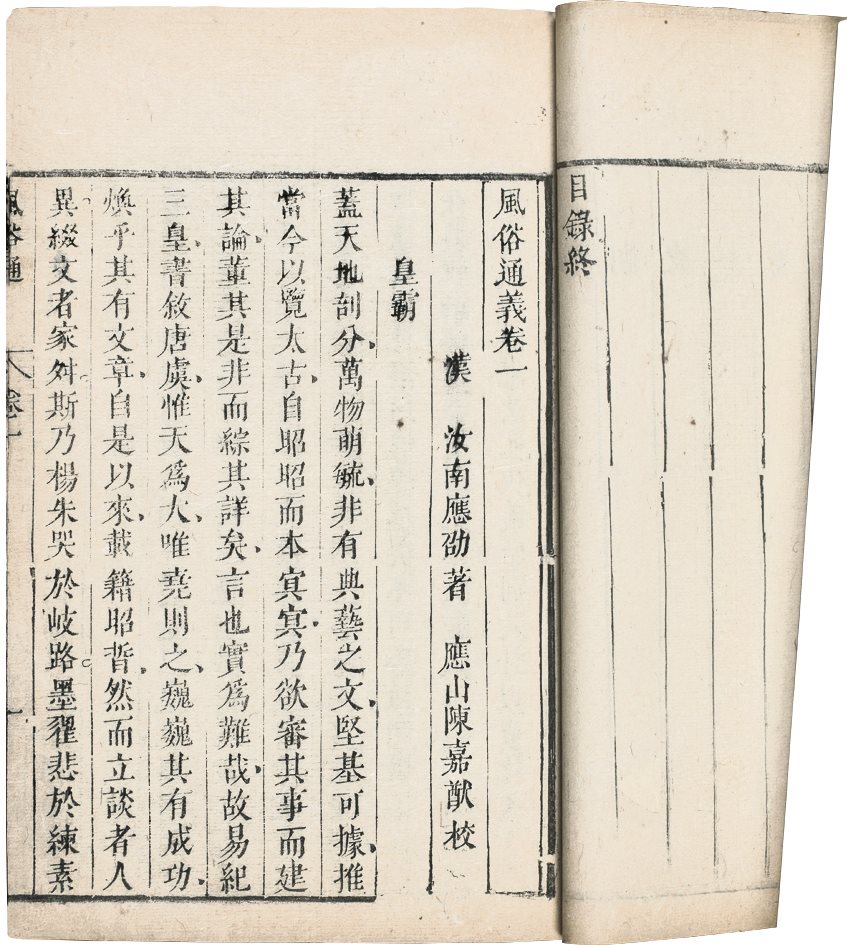 目錄終
風俗通義卷一
漢 汝南應劭著 應山陳嘉猷校
皇霸
蓋天地剖分萬物萌毓非有典藝之文堅基可據推
當今以覽太古自昭昭而本㝠㝠乃欲審其事而建
其論董其是非而綜其詳矣言也實爲難哉故易紀
三皇書敘唐虞惟天爲大唯堯則之巍巍其有成功
煥乎其有文章自是以來載籍昭晢然而立談者人
異綴文者家舛斯乃楊朱哭於岐路墨翟悲於練素
風俗通 卷一 一